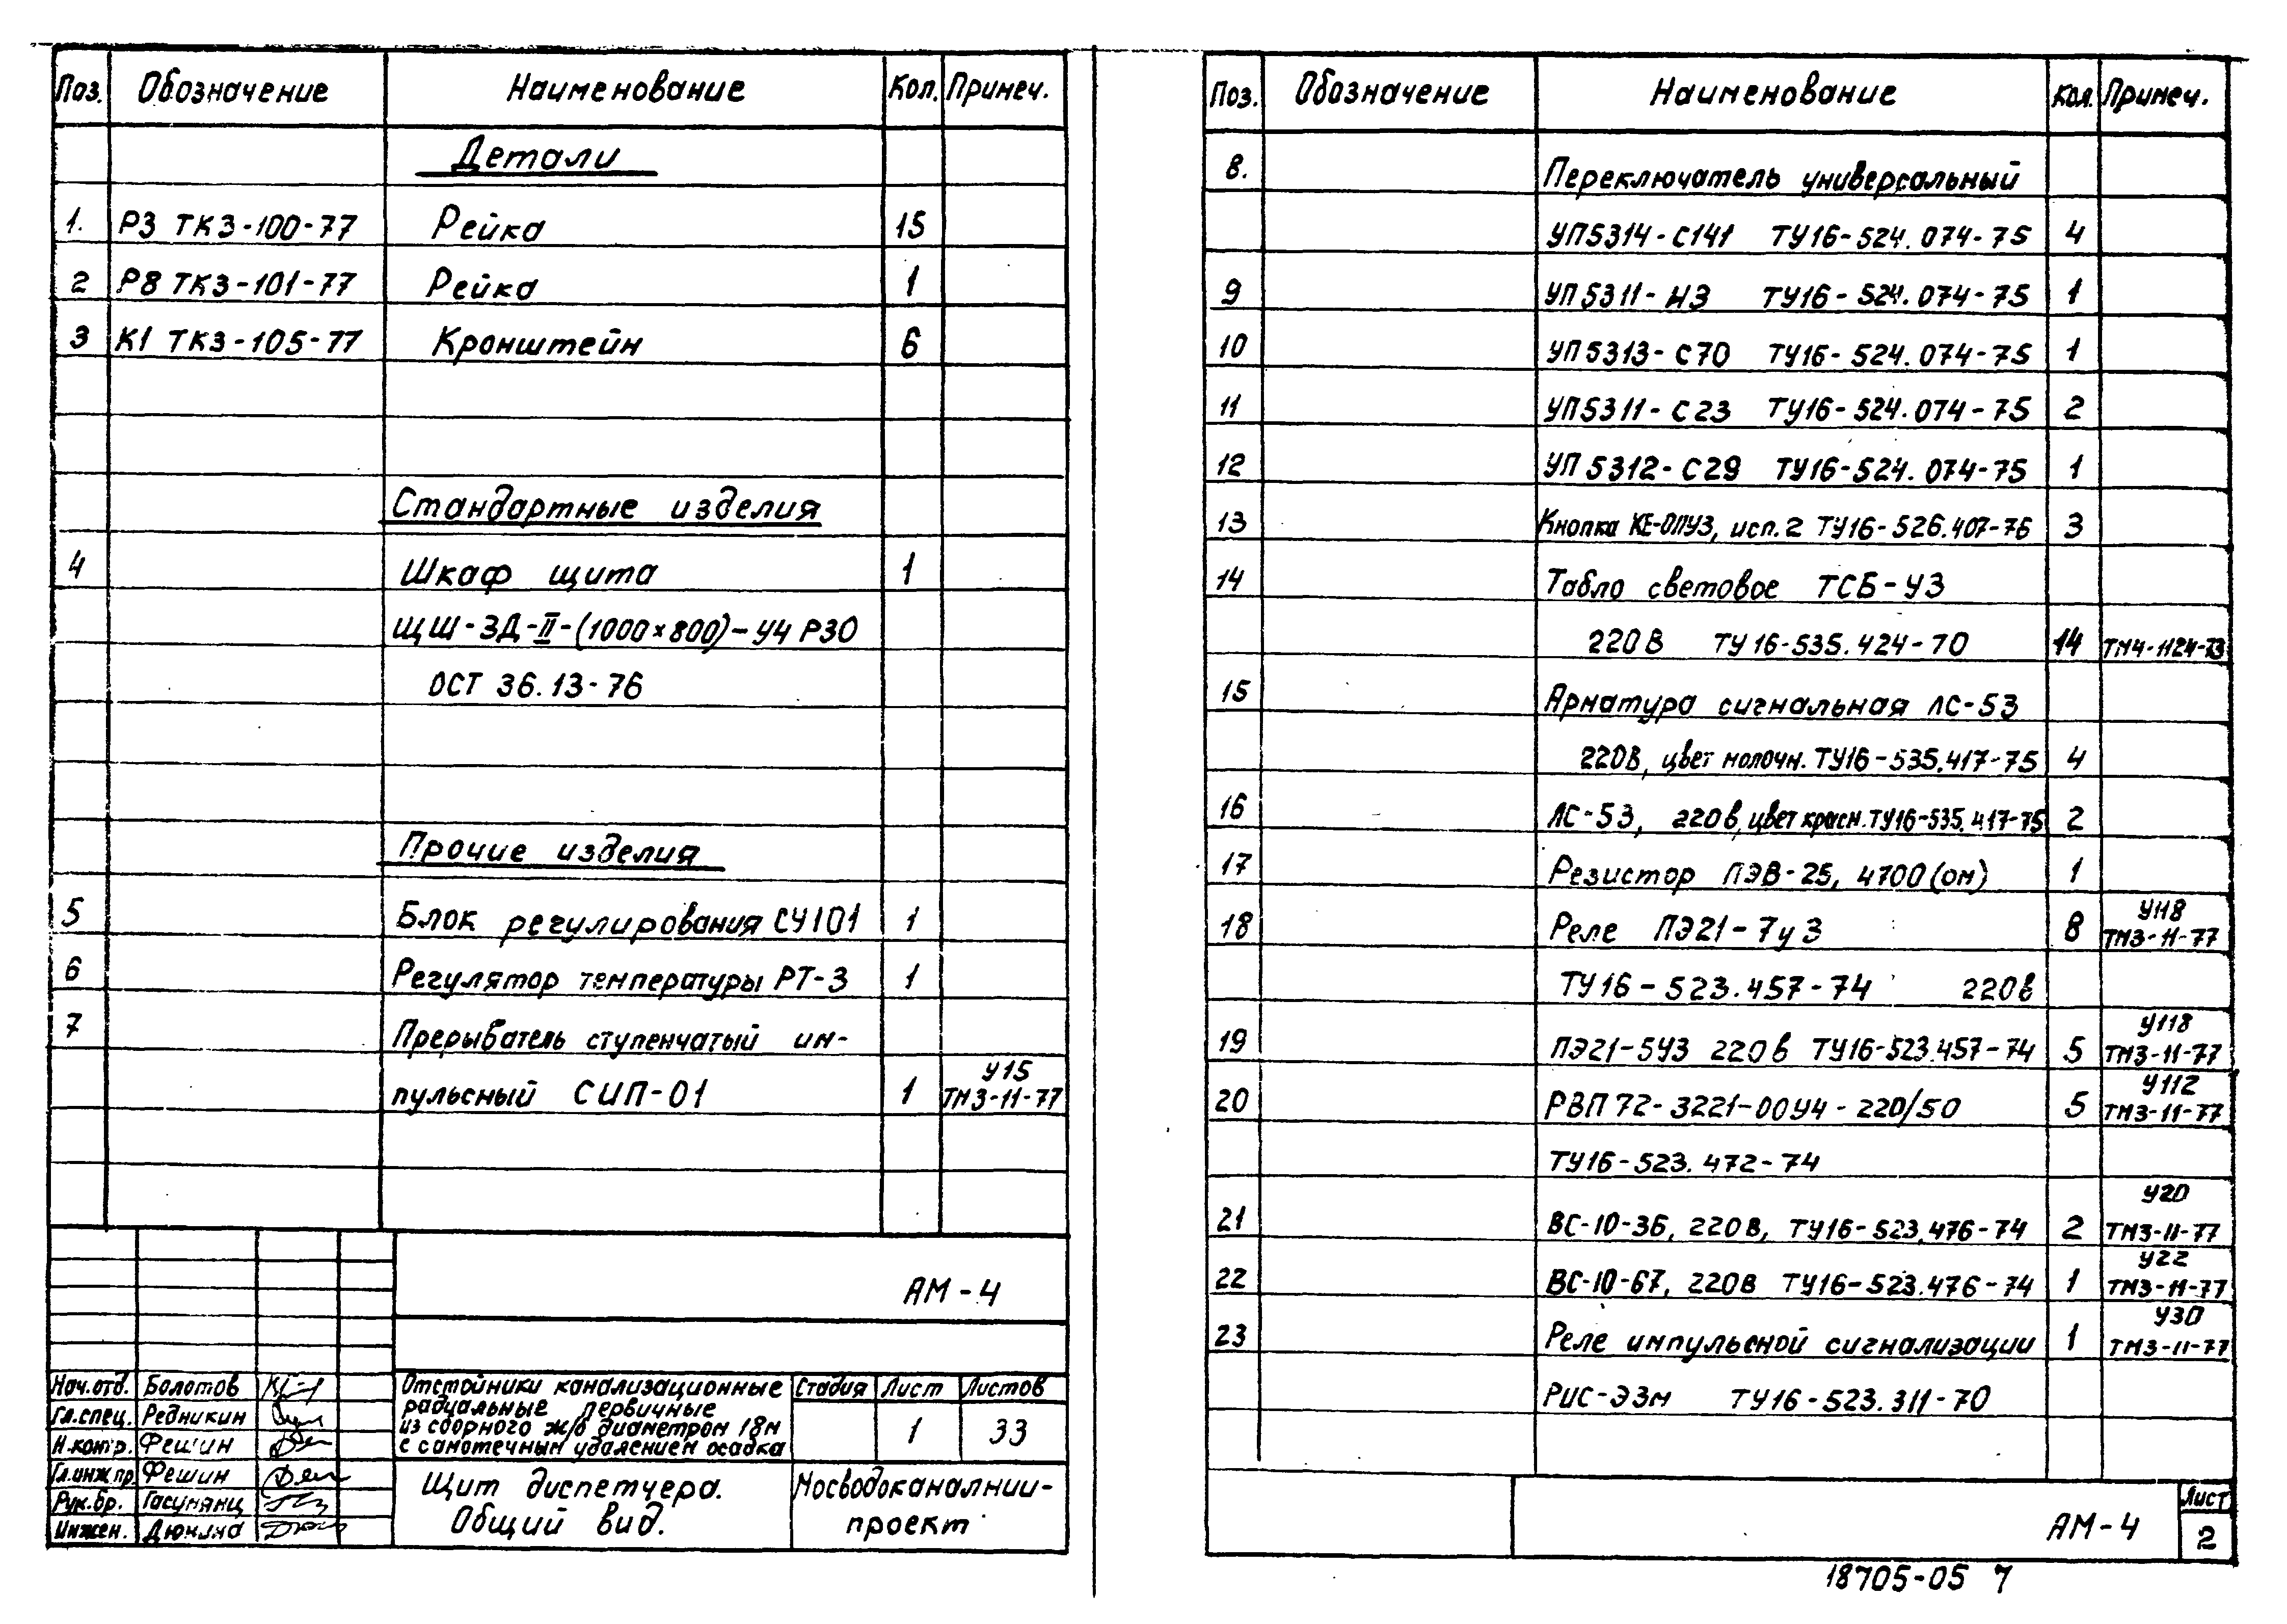 Поз. Обозначение Наименование Кол. Примеч.
Детали
1. Р3 ТК3-100-77 Рейка 15
2 Р8 ТК3-101-77 Рейка 1
3 К1 ТК3-105-77 Кронштейн 6
Стандартные изделия
4 Шкаф щита 1
ЩШ-3Д-II-(1000×800)-У4 Р30
ОСТ 36.13-76
Прочие изделия
5 Блок регулирования СУ101 1
6 Регулятор температуры РТ-3 1
7 Прерыватель ступенчатый им-
У15
пульсный СИП-01 1 ТМ3-11-77
АМ-4
Нач.отд. Болотов
Гл.спец. Редникин
Н.контр. Фешин
Гл.инж.пр. Фешин
Рук.бр. Гасумянц
Инжен. Дюнина
Отстойники канализационные
радиальные первичные
из сборного ж/б диаметром 18м
с самотечным удалением осадка
Стадия Лист Листов
1 33
Щит диспетчера.
Общий вид.
Мосводоканалнии-
проект
Поз. Обозначение Наименование Кол. Примеч.
8. Переключатель универсальный
УП5314-С141 ТУ16-524.074-75 4
9 УП5311-Н3 ТУ16-524.074-75 1
10 УП5313-С70 ТУ16-524.074-75 1
11 УП5311-С23 ТУ16-524.074-75 2
12 УП5312-С29 ТУ16-524.074-75 1
13 Кнопка КЕ-011У3, исп.2 ТУ16-526.407-76 3
14 Табло световое ТСБ-У3
220В ТУ16-535.424-70 14 ТМ4-1124-73
15 Арматура сигнальная ЛС-53
220В, цвет молочн. ТУ16-535.417-75 4
16 ЛС-53, 220в, цвет красн. ТУ16-535.417-75 2
17 Резистор ПЭВ-25, 4700(ом) 1
У118
18 Реле ПЭ21-7у3 8 ТМ3-11-77
ТУ16-523.457-74 220в
У118
19 ПЭ21-5У3 220в ТУ16-523.457-74 5 ТМ3-11-77
У112
20 РВП72-3221-00У4-220/50 5 ТМ3-11-77
ТУ16-523.472-74
У20
21 ВС-10-36, 220В, ТУ16-523.476-74 2 ТМ3-11-77
У22
22 ВС-10-67, 220В ТУ16-523.476-74 1 ТМ3-11-77
У30
23 Реле импульсной сигнализации 1 ТМ3-11-77
РИС-Э3м ТУ16-523.311-70
АМ-4
Лист
2
18705-05 7